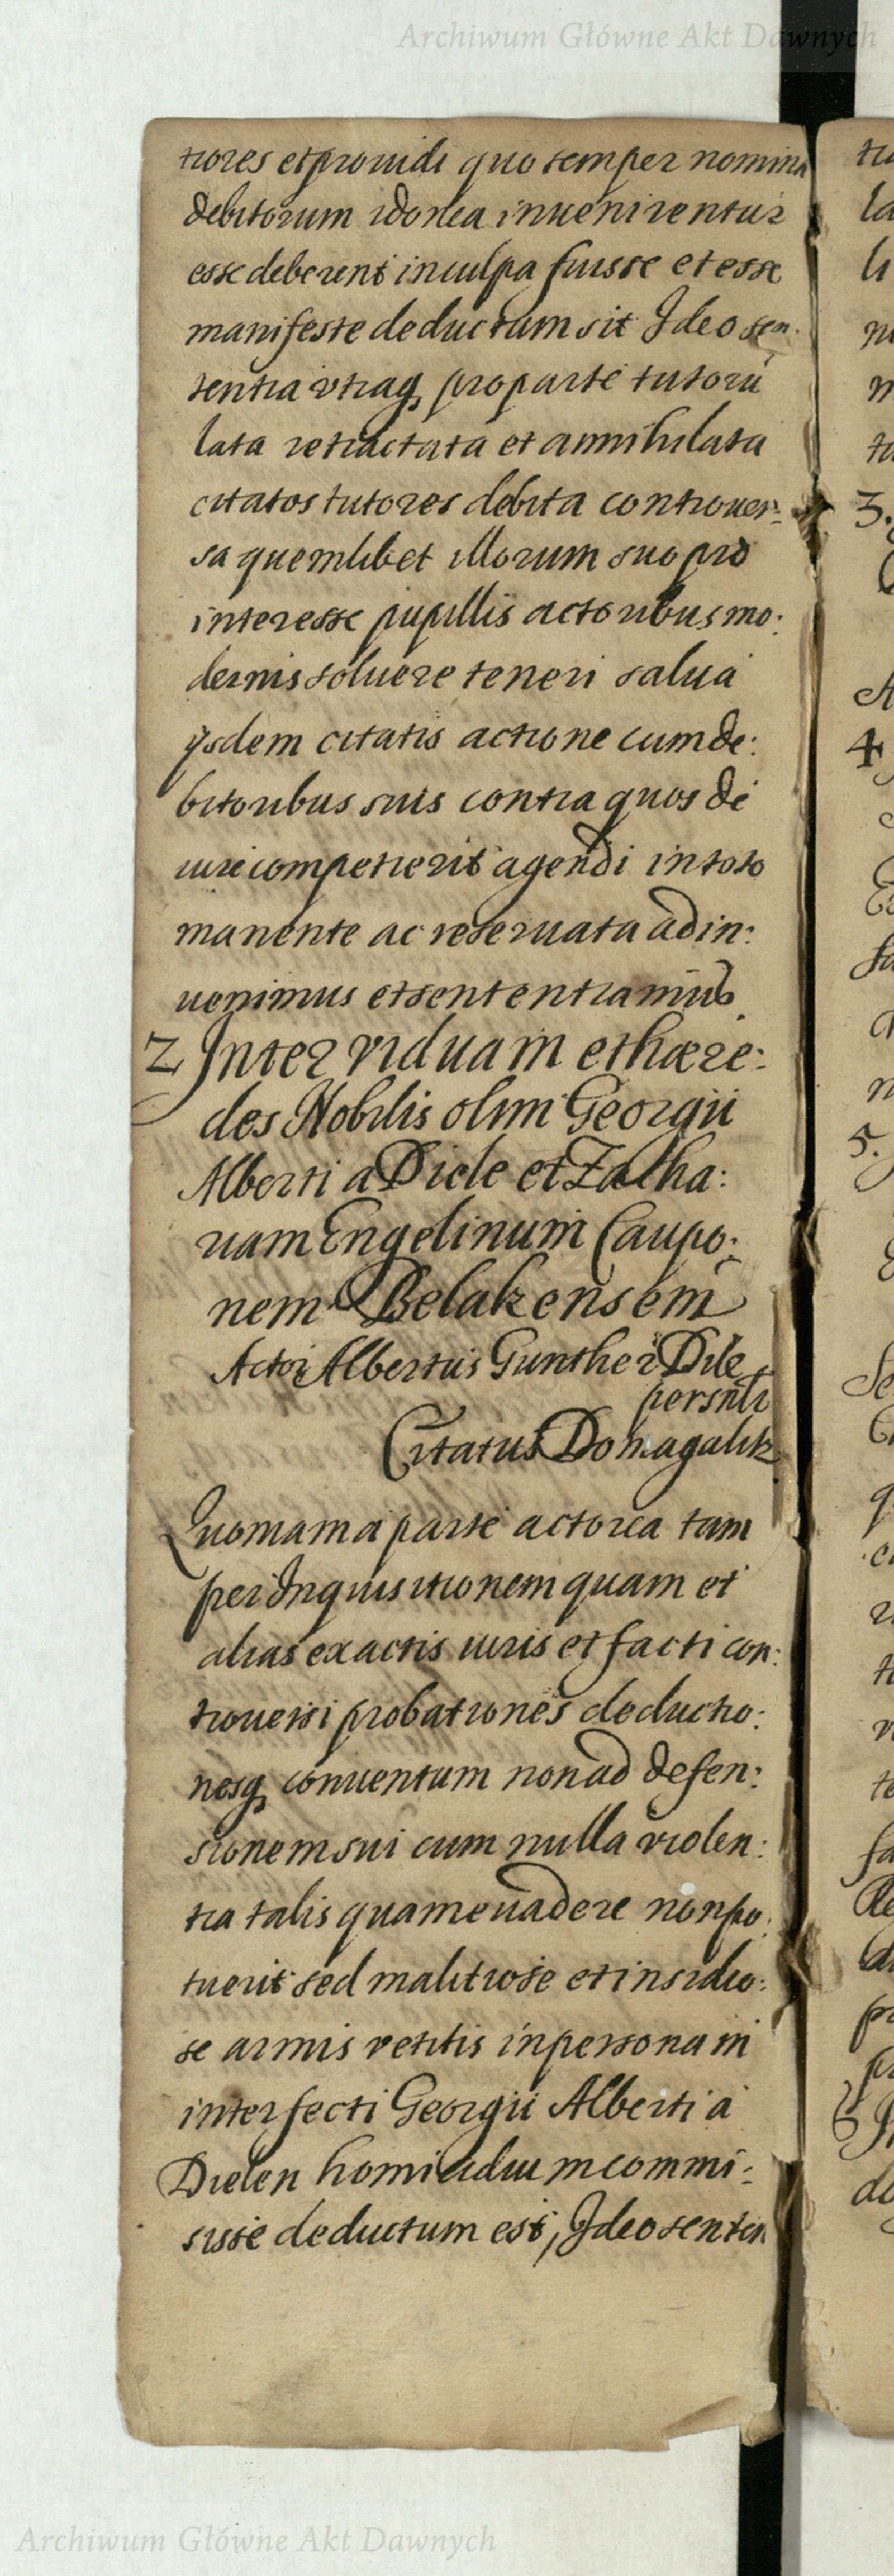 Archiwum Główne Akt Dawnych
tiores et prouidi quo semper nomina
debitorum idonea inuenirentur
esse deberent in culpa fuisse et esse
manifeste deductum sit Ideo sen:
tentia vtraq, pro parte tutorū
lata retractata et annihilata
citatos tutores debita controuer:
sa quemlibet illorum suo pro
interesse pupillis actoribus mo:
dernis soluere teneri salua
ysdem citatis actione cum de:
bitoribus suis contra quos de
iure competierit agendi in toto
manente ac reseruata adin:
uenimus et sententiamus
2 Inter viduam et hære:
des Nobilis olim Georgii
Alberti a Diele et Zacha:
uam Engelinum Caupo:
nem Belakensem
Actor Albertus Gunther Dile
persnlr
Citatus Domagalik
Quoniam a parte actorea tam
per Inquisitionem quam et
alias exactis iuris et facti con:
trouersi probationes deductio:
nesq, conuentum non ad defen:
sionem sui cum nulla violen:
tia talis quam euadere non po:
tuerit sed malitiose et insidio:
se armis vetitis in personam
interfecti Georgii Alberti a
Dielen homicidium commi:
sisse deductum est, Ideo senten
Archiwum Główne Akt Dawnych